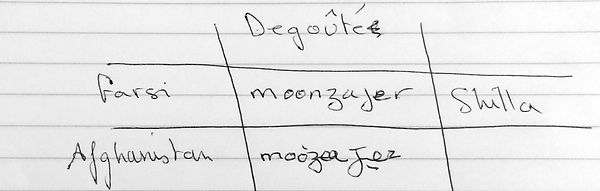 Degoûtée
Farsi moonzajer Shilla
Afghanistan